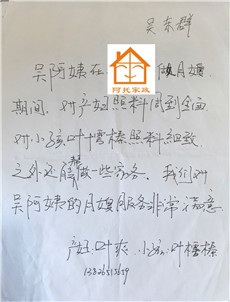 吴东群
吴阿姨在 做月嫂
阿托家政
期间,对产妇照料周到全面
对小孩叶榛榛照料细致
之外还帮做一些家务。我们对
吴阿姨的月嫂服务非常满意
产妇:叶爽 小孩:叶榛榛